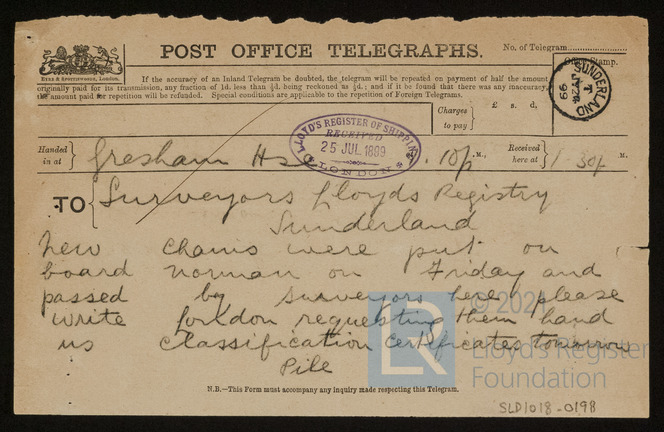 POST OFFICE TELEGRAPHS.
No. of Telegram
Office Stamp.
EYRE & SPOTTISWOODE, LONDON.
If the accuracy of an Inland Telegram be doubted, the telegram will be repeated on payment of half the amount
originally paid for its transmission, any fraction of 1d. less than ½d. being reckoned as ½d.; and if it be found that there was any inaccuracy,
the amount paid for repetition will be refunded. Special conditions are applicable to the repetition of Foreign Telegrams.
SUNDERLAND
99
Charges to pay
£ s. d.
LLOYD'S REGISTER OF SHIPPING
RECEIVED
25 JUL 1899
LONDON
Handed in at
Gresham Hse
1.10p M.,
Received here at
1.30p M.
TO Surveyors Lloyds Registry
Sunderland
New chains were put on
board Norman on Friday and
passed by surveyors here please
write London requesting them hand
us classification certificates tomorrow
Pile
N.B.—This Form must accompany any inquiry made respecting this Telegram.
LR
© 2021
Lloyd's Register
Foundation
SLD1018-0198